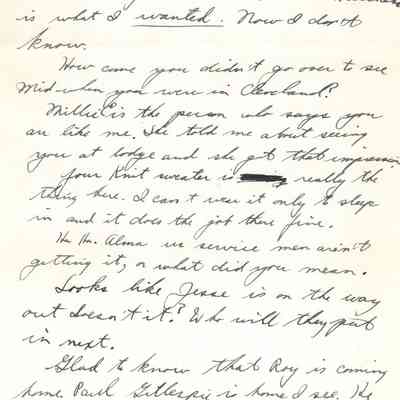 is what I wanted. Now I don't
know.
How come you didn't go over to see
Mid when you were in Cleveland?
Millie is the person who says you
are like me. She told me about seeing
you at lodge and she got that impression
Your Knit sweater is really the
thing here. I can't wear it only to sleep
in and it does the job there fine.
Ha Ha. Alma us service men aren't
getting it, or what did you mean.
Looks like Jesse is on the way
out doesn't it? Who will they put
in next.
Glad to know that Roy is coming
home. Paul Gillespie is home I see. He